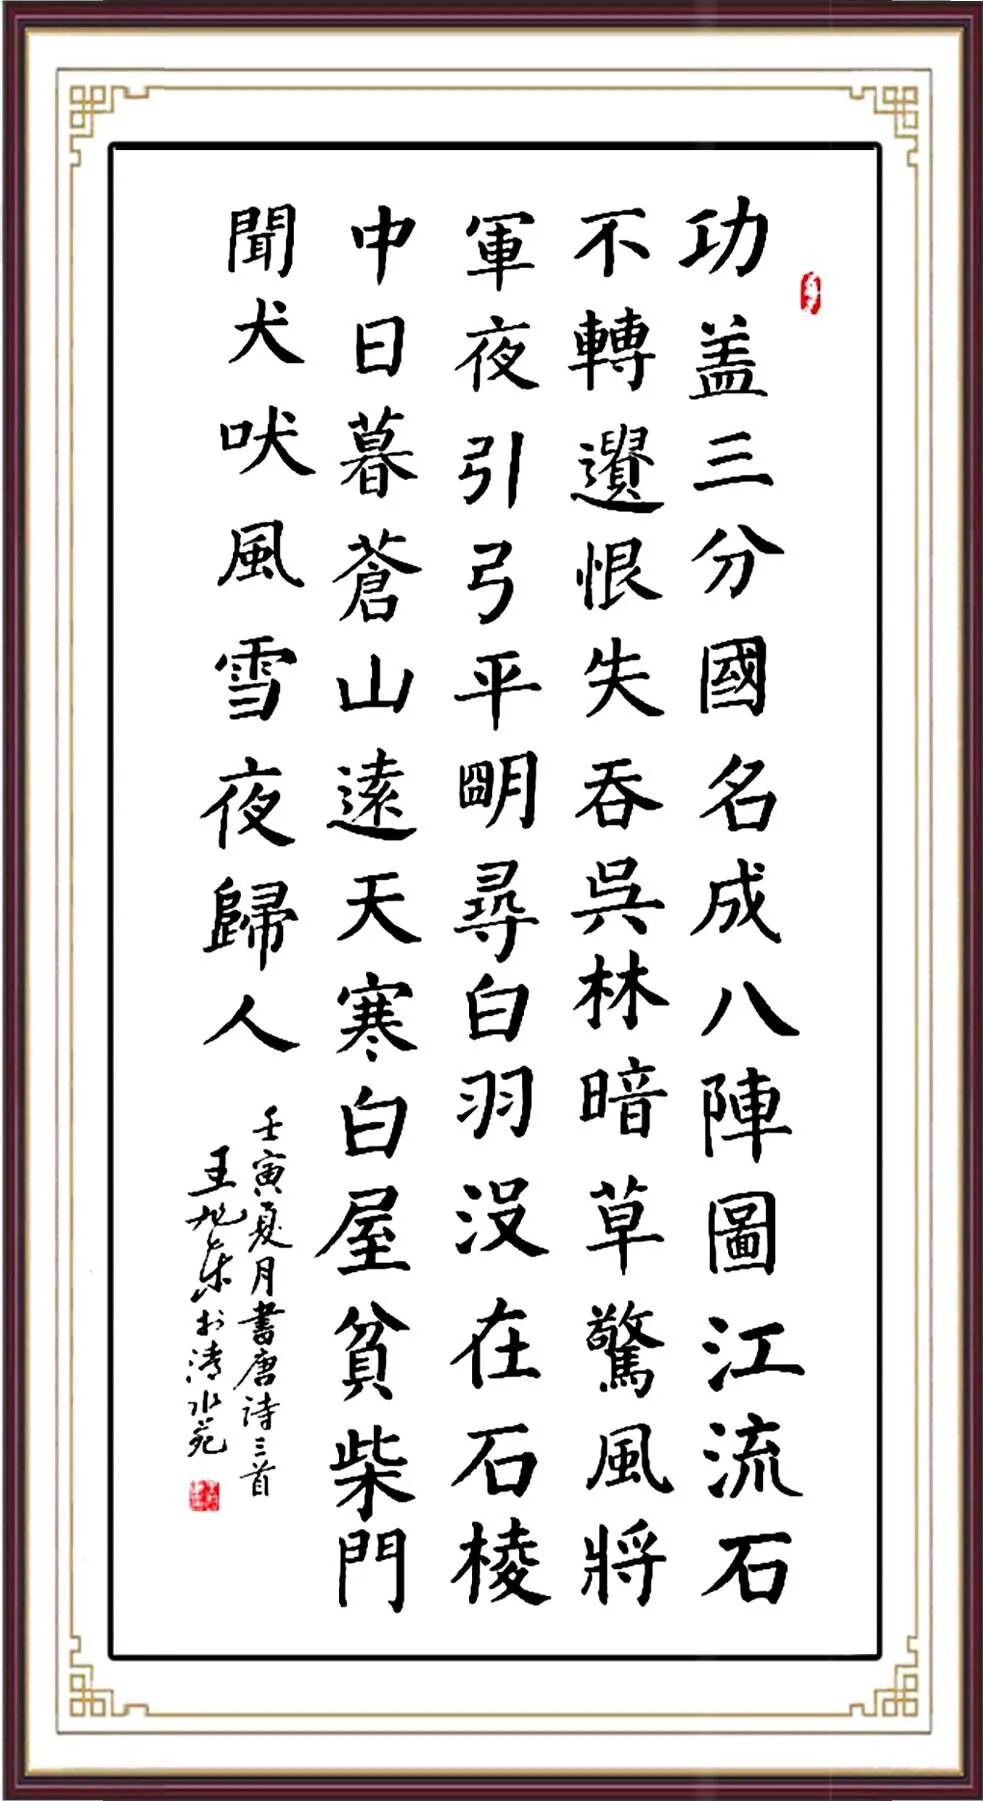 功盖三分國名成八陣圖江流石
不轉遺恨失吞吳林暗草驚風將
軍夜引弓平朙尋白羽没在石棱
中日暮蒼山遠天寒白屋貧柴門
聞犬吠風雪夜歸人
壬寅夏月書唐詩三首
王旭东於清水苑